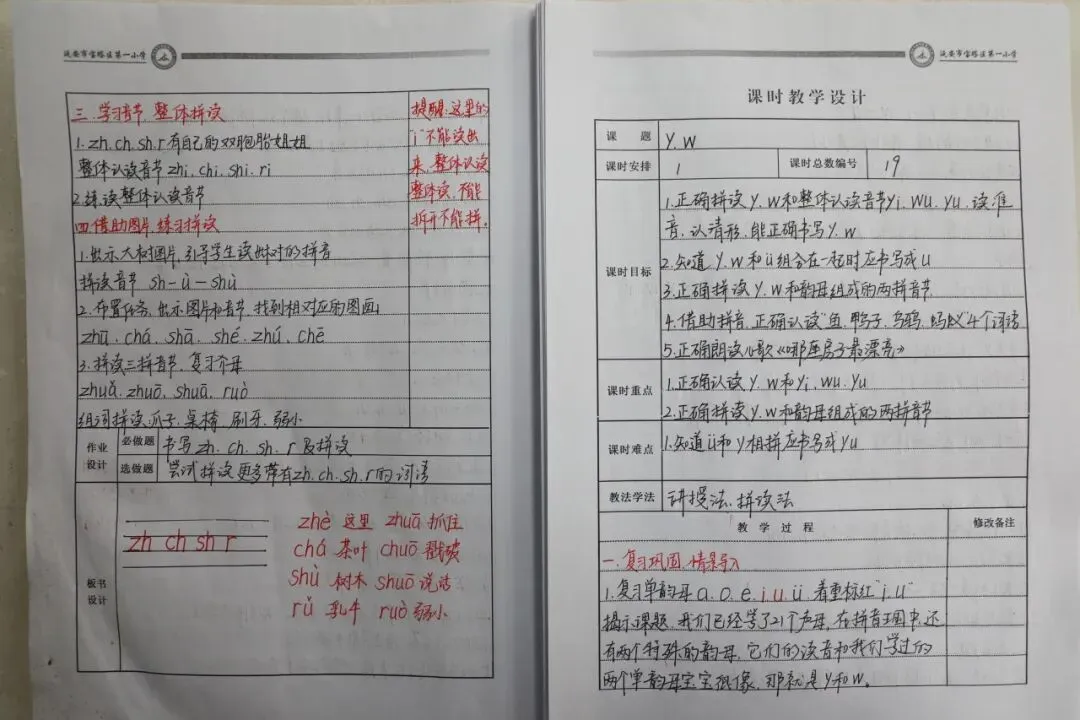 延安市宝塔区第一小学
三.学习音节 整体拼读
1.zh.ch.sh.r有自己的双胞胎姐姐
整体认读音节zhi.chi.shi.ri
2.练读整体认读音节
四.借助图片.练习拼读
1.出示大树图片.引导学生读出树的拼音
拼读音节 sh-ù-shù
2.布置任务.出示图片和音节.找到相对应的图画
zhū.chá.shā.shé.zhú.chē
3.拼读三拼音节.复习介母
zhuǎ.zhuō.shuā.ruò
组词拼读.爪子.桌椅.刷牙.弱小
提醒.这里的
"i"不能读出
来.整体认读
整体读.不能
拆开不能拼.
作业设计
必做题 书写zh.ch.sh.r及拼读
选做题 尝试拼读更多带有zh.ch.sh.r的词语
板书设计
zh ch sh r
zhè 这里 zhuā 抓住
chá 茶叶 chuō 戳破
shù 树木 shuō 说话
rǔ 乳牛 ruò 弱小
延安市宝塔区第一小学
课时教学设计
课 题 y.w
课时安排 1 课时总数编号 19
课时目标
1.正确拼读y.w和整体认读音节yi.wu.yu.读准
音.认清形.能正确书写y.w
2.知道y.w和ü组合在一起时应书写成u
3.正确拼读y.w和韵母组成的两拼音节
4.借助拼音.正确认读"鱼.鸭子.乌鸦.蚂蚁"4个词语
5.正确朗读儿歌《哪座房子最漂亮》
课时重点
1.正确认读y.w和yi.wu.yu
2.正确拼读y.w和韵母组成的两拼音节
课时难点 1.知道ü和y相拼应书写成yu
教法学法 讲授法.拼读法
教 学 过 程 修改备注
一.复习巩固.情景导入
1.复习单韵母a.o.e.i.u.ü 着重标红"i.u"
揭示课题.我们已经学了21个声母.在拼音王国中.还
有两个特殊的韵母.它们的读音和我们学过的
两个单韵母宝宝很像.那就是y和w。